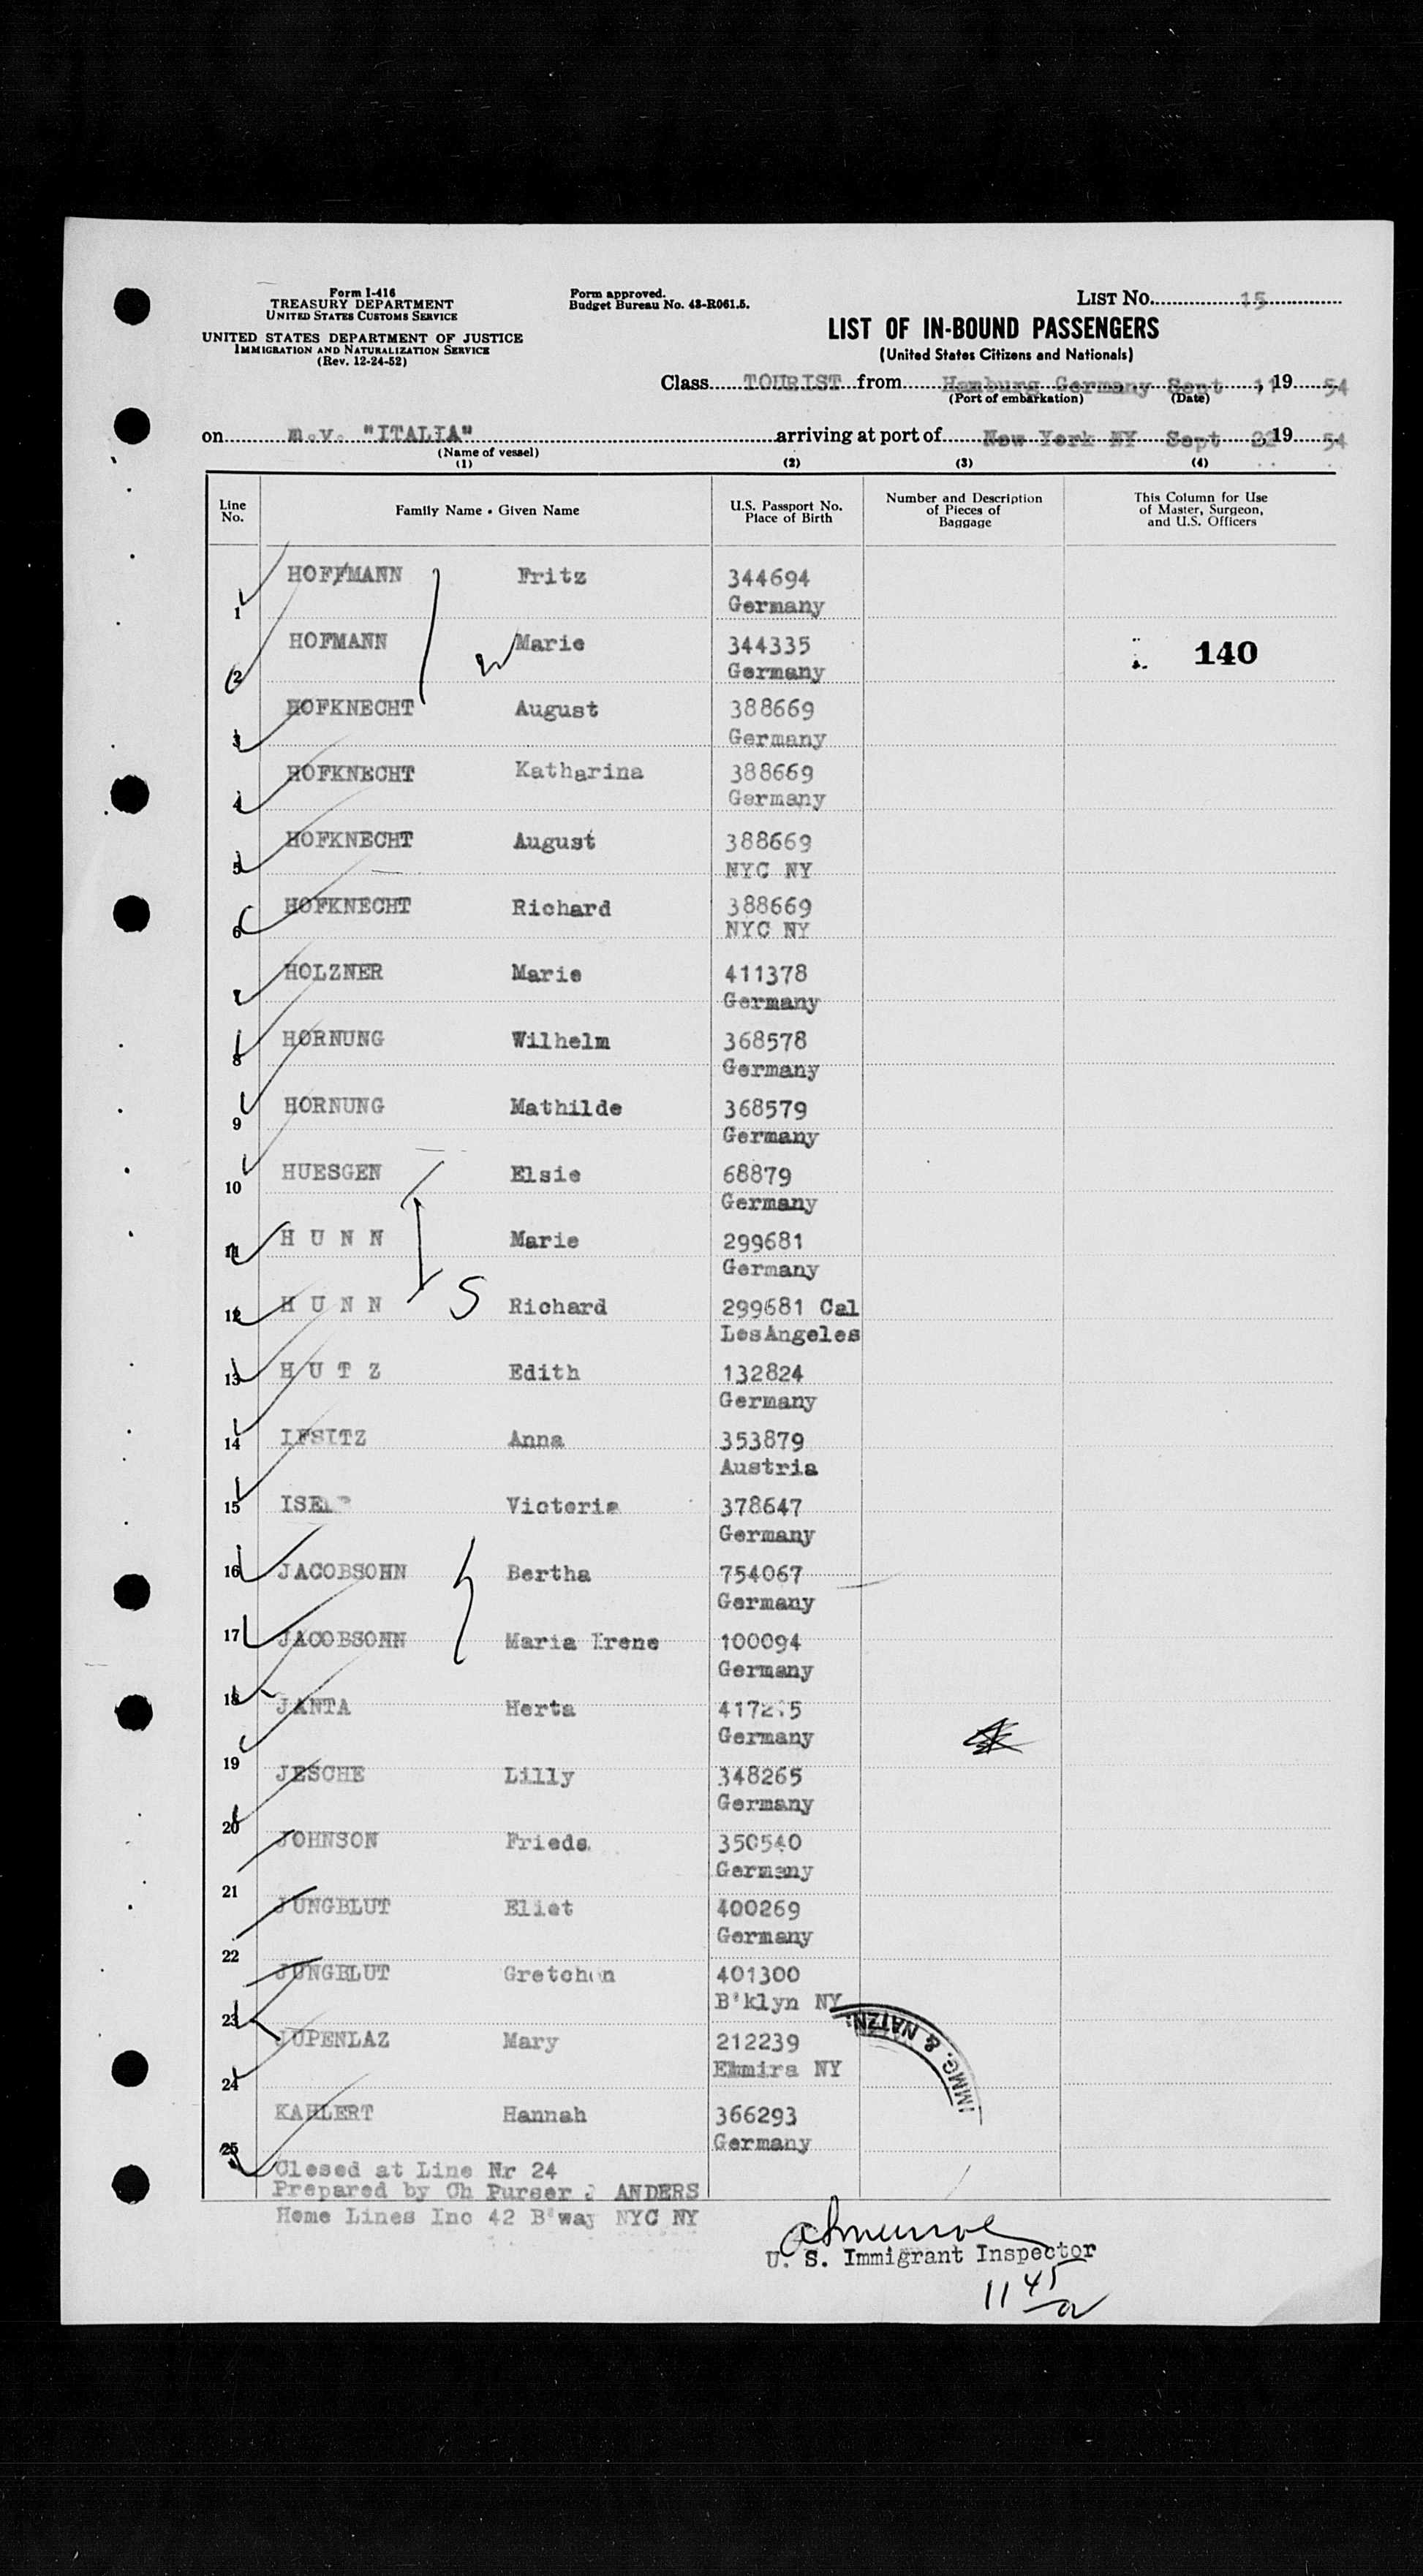 Form I-416
TREASURY DEPARTMENT
UNITED STATES CUSTOMS SERVICE
UNITED STATES DEPARTMENT OF JUSTICE
IMMIGRATION AND NATURALIZATION SERVICE
(Rev. 12-24-52)
Form approved.
Budget Bureau No. 43-R061.5.
LIST NO. 15
LIST OF IN-BOUND PASSENGERS
(United States Citizens and Nationals)
Class TOURIST from Hamburg Germany Sept 11, 19 54
(Port of embarkation) (Date)
on m.v. "ITALIA" arriving at port of New York NY Sept 22, 19 54
(Name of vessel)
(1) (2) (3) (4)
Line No. Family Name - Given Name U.S. Passport No. Place of Birth Number and Description of Pieces of Baggage This Column for Use of Master, Surgeon, and U.S. Officers
1 HOFFMANN Fritz 344694
Germany
2 HOFMANN Marie 344335 140
Germany
3 HOFKNECHT August 388669
Germany
4 HOFKNECHT Katharina 388669
Germany
5 HOFKNECHT August 388669
NYC NY
6 HOFKNECHT Richard 388669
NYC NY
7 HOLZNER Marie 411378
Germany
8 HORNUNG Wilhelm 368578
Germany
9 HORNUNG Mathilde 368579
Germany
10 HUESGEN Elsie 68879
Germany
11 H U N N Marie 299681
Germany
12 H U N N S Richard 299681 Cal
LosAngeles
13 H U T Z Edith 132824
Germany
14 IFSITZ Anna 353879
Austria
15 Victoria 378647
Germany
16 JACOBSOHN Bertha 754067
Germany
17 JACOBSOHN Maria Irene 100094
Germany
18 JANTA Herta
Germany
19 JESCHE Lilly 348265
Germany
20 JOHNSON Frieda 350540
Germany
21 JUNGBLUT Eliet 400269
Germany
22 JUNGBLUT Gretchen 401300
B'klyn NY
23 JUPENLAZ Mary 212239
Elmira NY
24 KAHLERT Hannah 366293
Germany
25
IMMG. & NATZN.
Closed at Line Nr 24
Prepared by Ch Purser J ANDERS
Home Lines Inc 42 B'way NYC NY
U. S. Immigrant Inspector
11 45